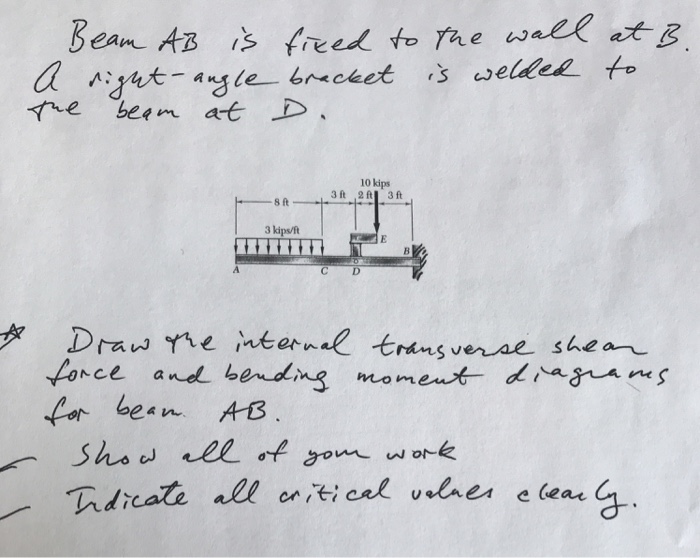 Beam AB is fixed to the wall at B.
A right-angle bracket is welded to
the beam at D.
10 kips
3 ft 2 ft 3 ft
8 ft
3 kips/ft
E
B
A C D
Draw the internal transverse shear
force and bending moment diagrams
for beam AB.
Show all of your work
Indicate all critical values clearly.